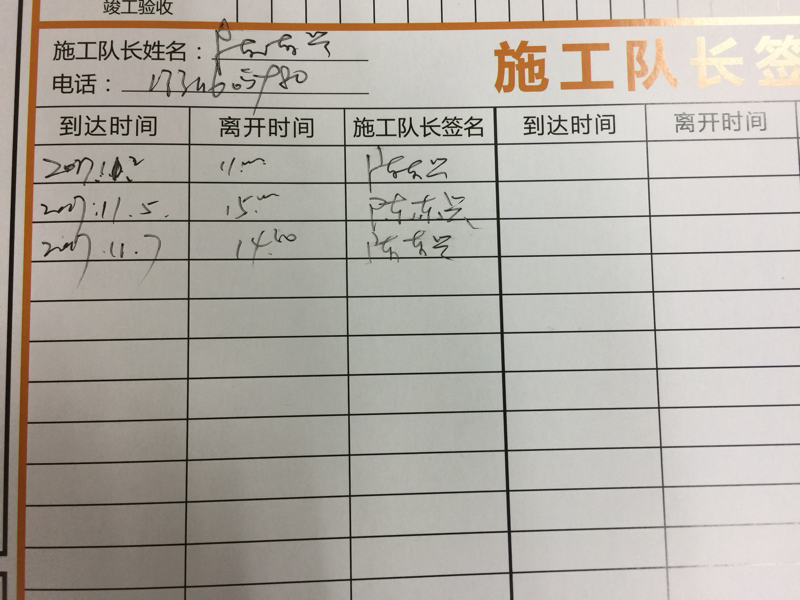 竣工验收
施工队长姓名：陈东兴
电话：
施工队长签
到达时间 离开时间 施工队长签名 到达时间 离开时间
2017.11.2 11:00 陈东兴
2017.11.5. 15:00 陈东兴
2017.11.7 14:00 陈东兴